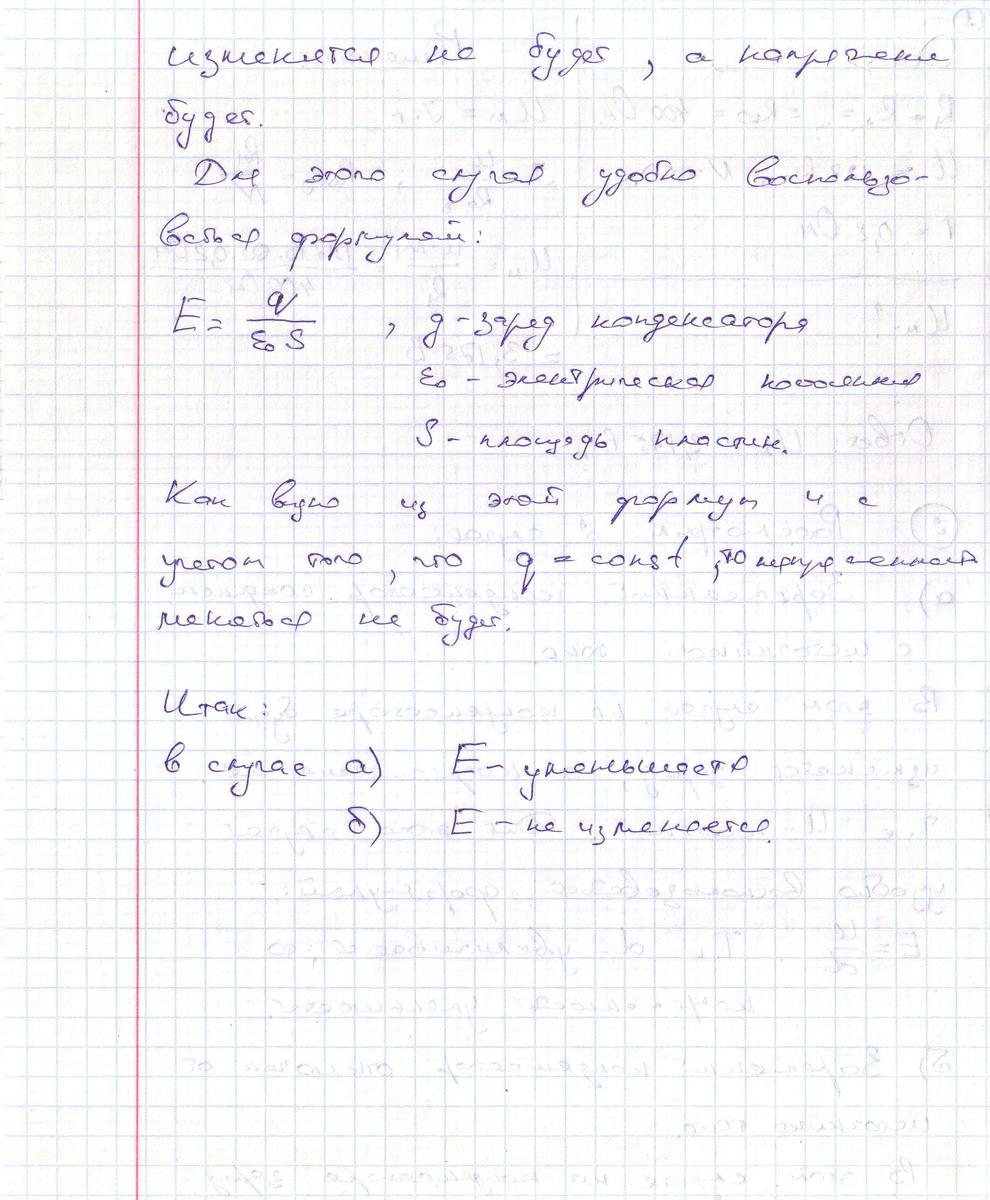 изменятся не будет, а напряжение
будет.
Для этого случая удобно воспользо-
ваться формулой:
E = q / ε₀ S , q - заряд конденсатора
ε₀ - электрическая постоянная
S - площадь пластин.
Как видно из этой формулы и с
учетом того, что q = const, то напряженность
меняться не будет.
Итак:
в случае а) E - уменьшается
б) E - не изменяется.